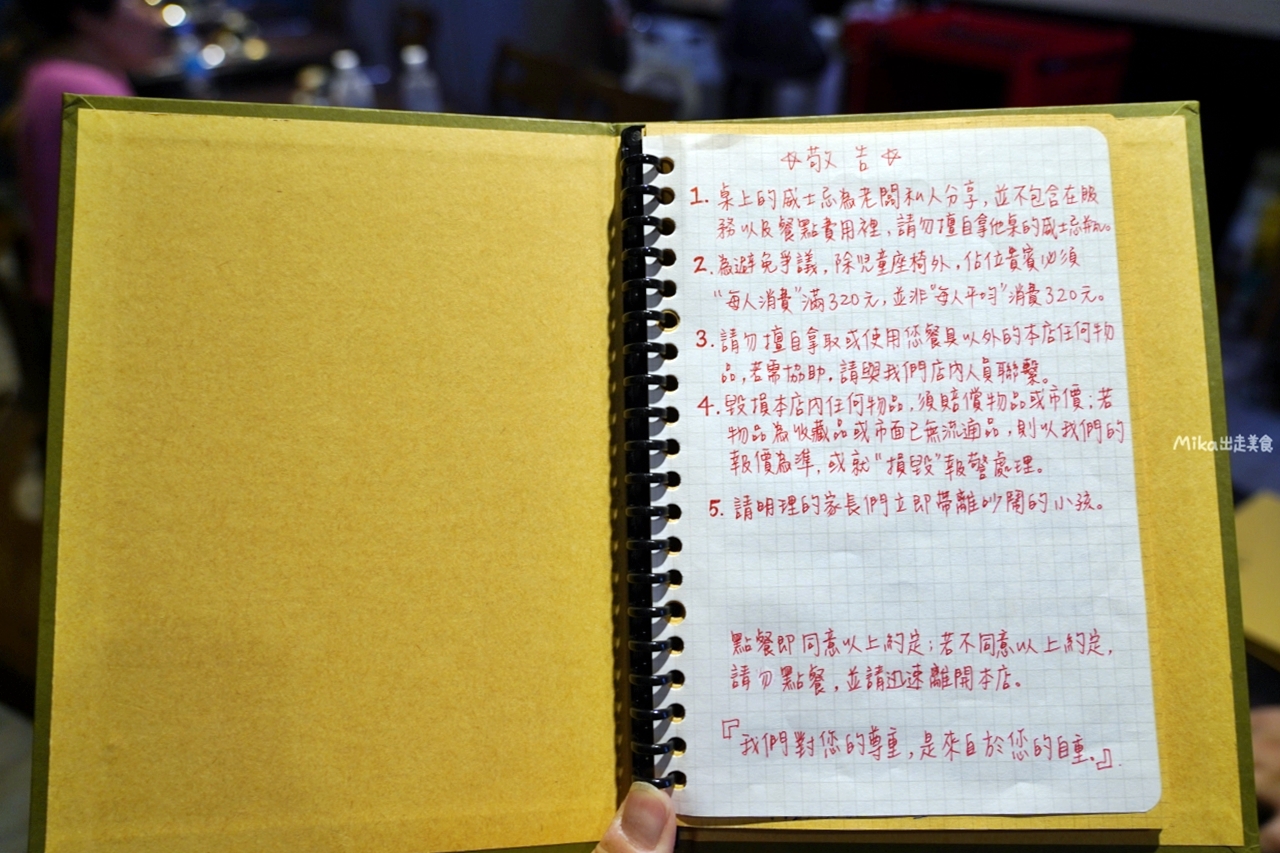 ☆敬告☆
1. 桌上的威士忌為老闆私人分享，並不包含在服
務以及餐點費用裡，請勿擅自拿他桌的威士忌瓶。
2. 為避免爭議，除兒童座椅外，佔位貴賓必須
“每人消費”滿320元，並非“每人平均”消費320元。
3. 請勿擅自拿取或使用您餐具以外的本店任何物
品，若需協助，請與我們店內人員聯繫。
4. 毀損本店內任何物品，須賠償物品或市價；若
物品為收藏品或市面已無流通品，則以我們的
報價為準，或就“損毀”報警處理。
5. 請明理的家長們立即帶離吵鬧的小孩。
點餐即同意以上約定；若不同意以上約定，
請勿點餐，並請迅速離開本店。
『我們對您的尊重，是來自於您的自重。』
Mika出走美食